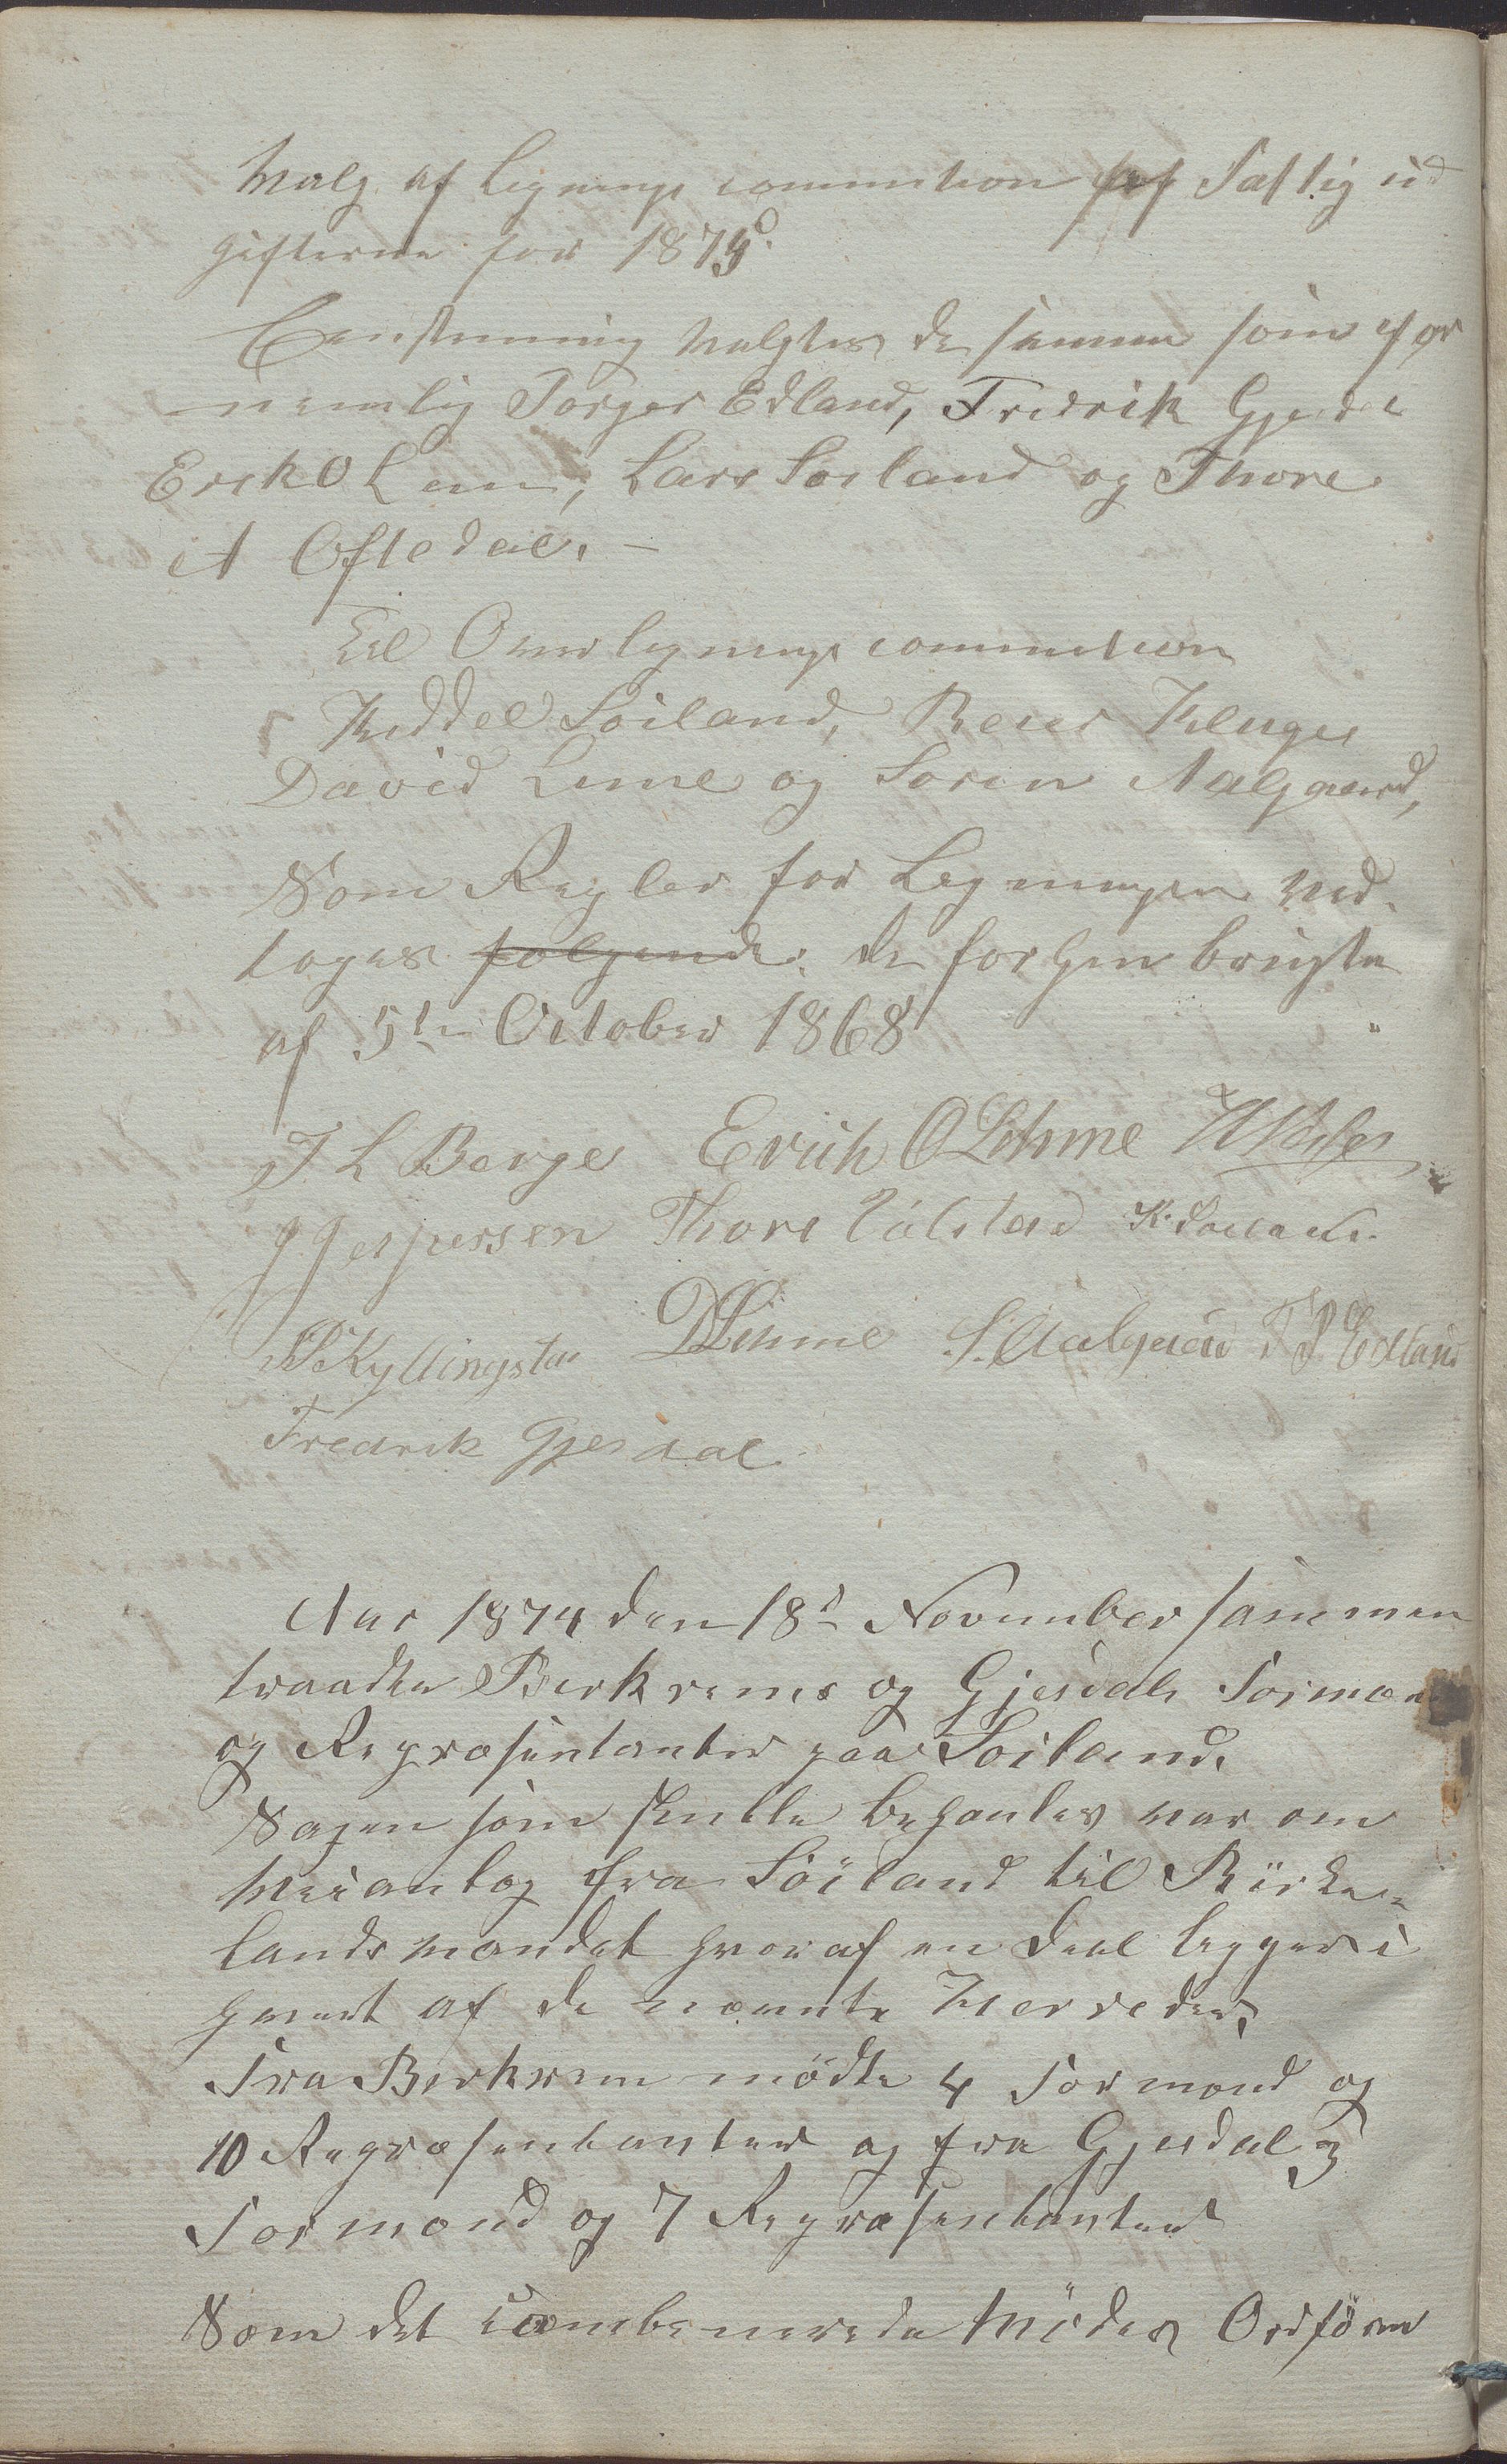 Valg af Lignings commition paa Fattig ud
gifterne for 1875.
Eenstemmig valgtes de samme som før
nemlig Torger Edland, Fredrik Gjesdal
Erik O Lime, Lars Soiland og Thore
A Oftedal. –
Til Overlignings commition
Keddel Soiland, Reier
David Lime og Soren Aalgaard,
Som Regler for Ligningen ved-
toges følgende: de forhen brugte
af 5te October 1868
T L Berge Erich O Lehme
J Jespersen Thore K. Soiland
Kyllingstad D Lehme S. Aalgaard T T Edland
Fredrik Gjesdal
Aar 1874 den 18de November sammen
traadte Birkrems og Gjesdals Formænd
og Repræsentanter paa Soiland.
Sagen som skulle behanles var om
Veianlæg fra Söiland til Birke-
landsvandet hvoraf en Deel ligger i
hvert af de nævnte Herreder,
Fra Birkrem mödte 4 Formænd og
10 Repræsentanter og fra Gjesdal 3
Formænd og 7 Repræsentanter
Som det combinerede Mödes Ordförer